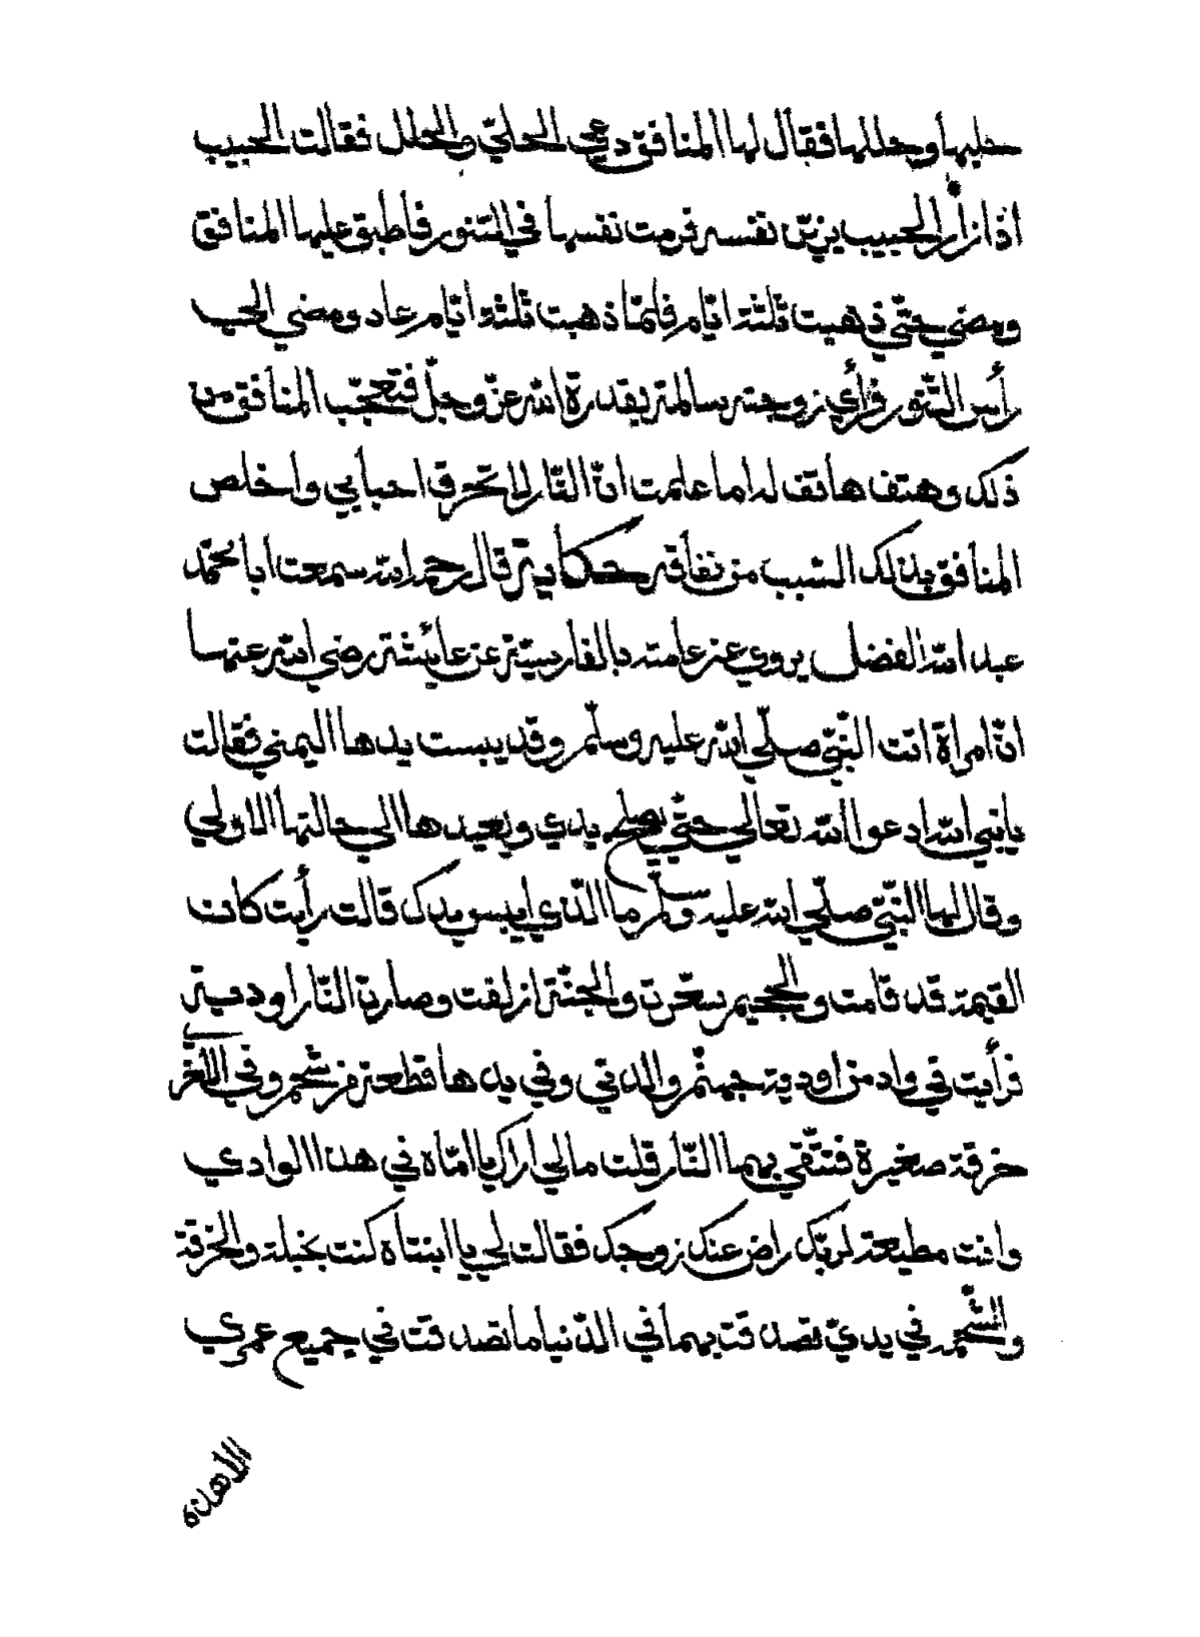 حليها وحللها فقال لها المنافق دعي الحليّ والحلل فقالت الحبيب
اذا زار الحبيب يزيّن نفسه فرمت نفسها في التنور فاطبق عليها المنافق
ومضي حتّي ذهبت ثلثة ايّام فلمّا ذهبت ثلثة ايّام عاد ومضي الي
رأس التنّور فرأي زوجته سالمة بقدرة الله عزّ وجلّ فتعجّب المنافق من
ذلك وهتف هاتف له اما علمت انّ النّار لا تحرق احبابي واخلص
المنافق بذلك السّبب من نفاقه حكاية قال رحمه الله سمعت ابا محمّد
عبد الله الفضل يروي عن عامته بالفارسيّة عن عائشة رضي الله عنها
انّ امراة اتت النّبيّ صلّي الله عليه وسلّم وقد يبست يدها اليمني فقالت
يا نبي الله ادعوا الله تعالي حتّي يصلح يدي ويعيدها الي حالتها الاولي
وقال لها النّبيّ صلّي الله عليه وسلّم ما الّذي ايبس يدك قالت رأيت كان
القيمة قد قامت والجحيم سعّرت والجنّة ازلفت وصارت النّار اودية
فرأيت في واد من اودية جهنّم والدتي وفي يدها قطعة من شحم وفي الاخر
خرقة صغيرة فتتّقي بهما النّار قلت مالي اراك يا امّاه في هذا الوادي
وانت مطيعة لربّك راض عنك زوجك فقالت لي يا ابنتاه كنت بخيلة والخرقة
والشّحمه في يديّ تصدقت بهما في الدّنيا ما تصدقت في جميع عمري
الا هذه